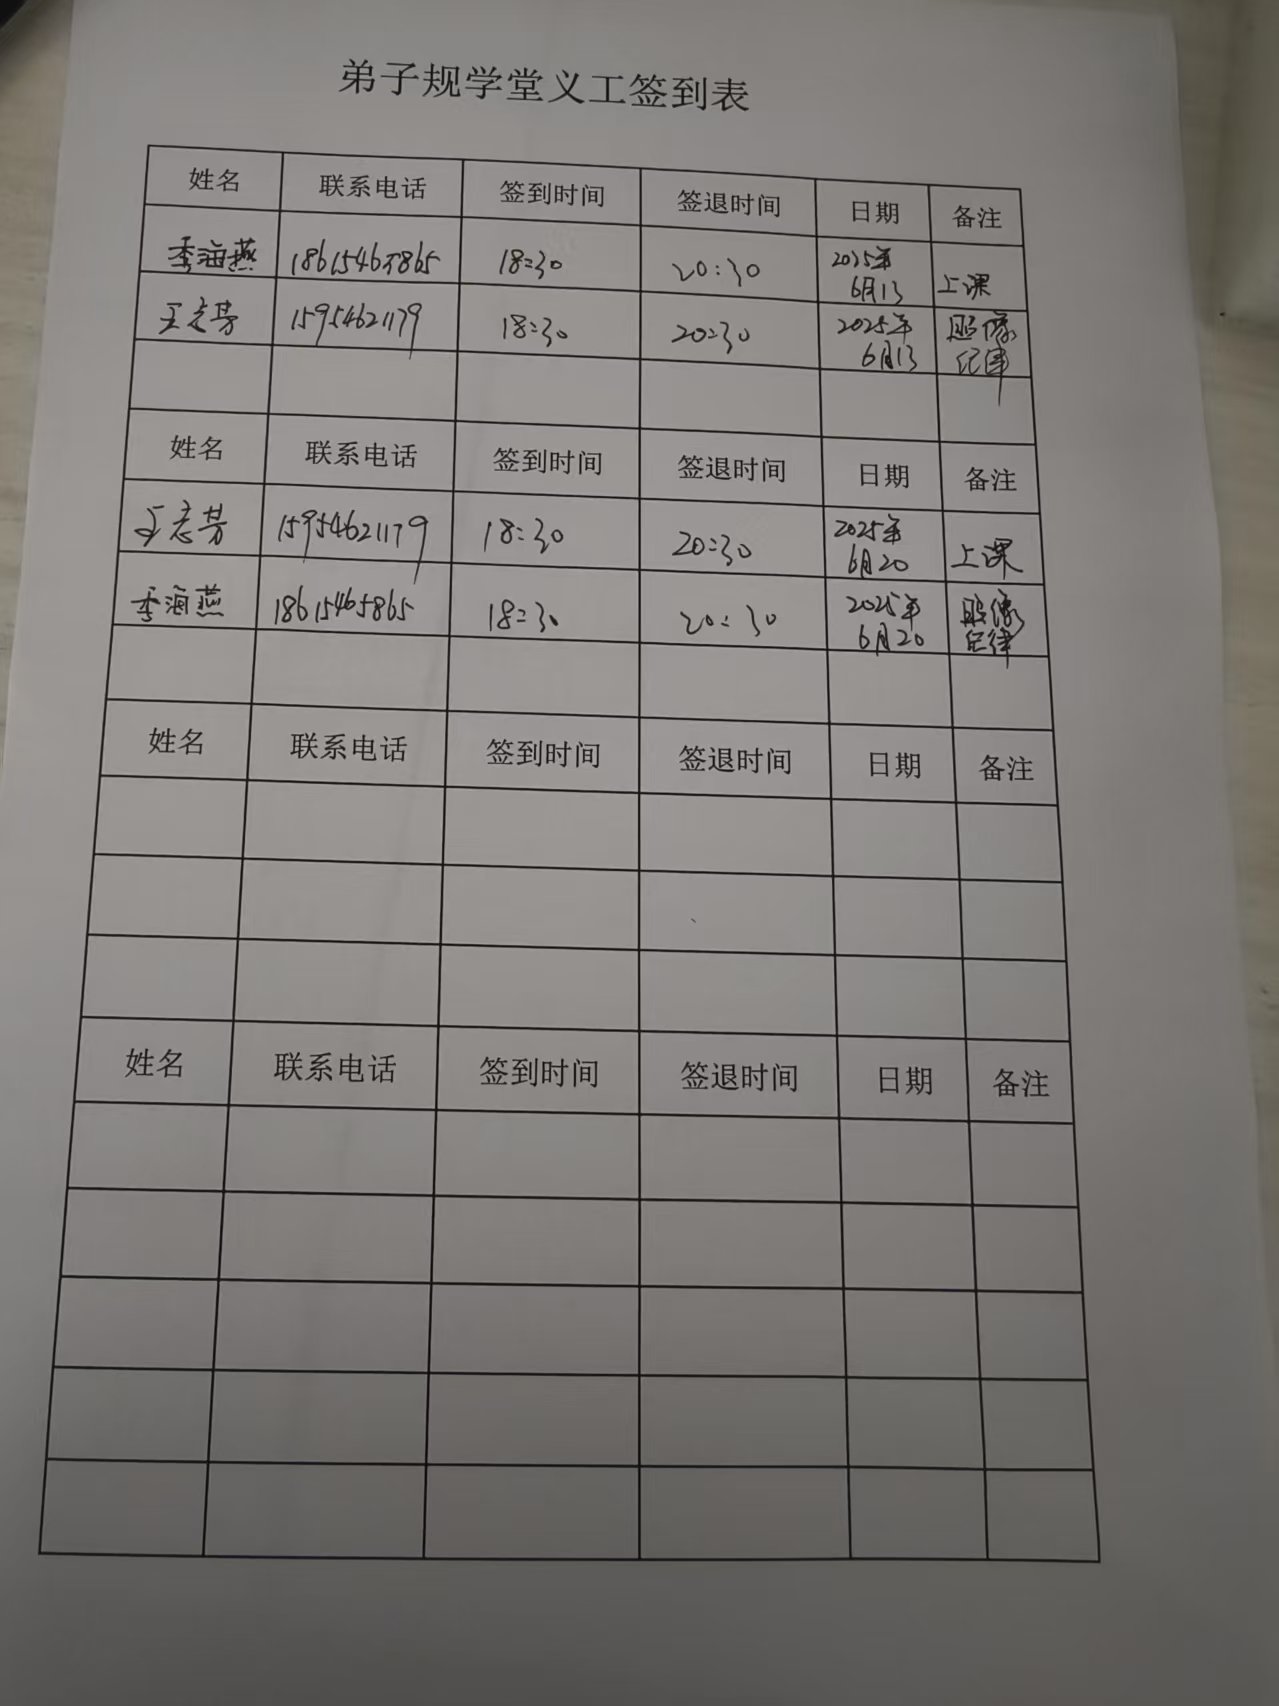 弟子规学堂义工签到表
姓名 联系电话 签到时间 签退时间 日期 备注
季海燕 18615465865 18:30 20:30 2025年 6月13 上课
王志芳 15954621179 18:30 20:30 2025年 6月13 照像 纪律
姓名 联系电话 签到时间 签退时间 日期 备注
王志芳 15954621179 18:30 20:30 2025年 6月20 上课
季海燕 18615465865 18:30 20:30 2025年 6月20 照像 纪律
姓名 联系电话 签到时间 签退时间 日期 备注
姓名 联系电话 签到时间 签退时间 日期 备注